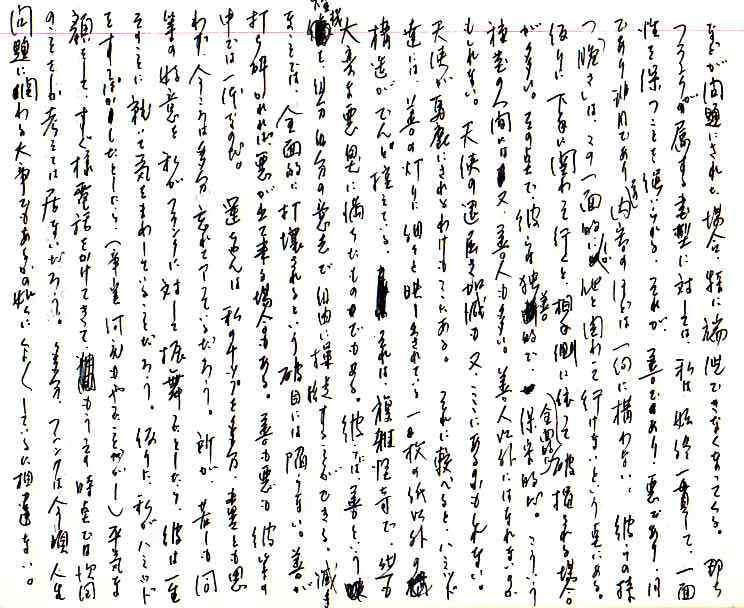 などが問題にされた場合、特に端倪できなくなってくる。即ち
フランクが属する典型に対しては、私は始終一貫して、一面
性を保つことを強いられる。それが、善であり悪であり、
であり、内省のほうは一向に構わない、彼らの様
つ「脆さ」は、この一面的にしか他と関わって行けないという点にある。
仮りに下手に関わって行くと、相手側に依って全面的に破壊される場合
が多い。その点で彼らは独善的で、保守的だ。こういう
種類の人間には又、善人も多い。善人以外にはなれないのか
もしれない。天使の退屈さ加減も又、ここにあるかもしれない。
天使が馬鹿にされるわけもここにある。それに較べると、ハミッド
達には、善の灯りに細々と映し出されている一枚の紙以外の
構造がでんと控えている。それは、複雑怪奇で、然も
大きな悪臭に満ちたものでもある。彼らは善という
を、自分自分の意志で自由に操作することができる。滅多
なことでは、全面的に打壊されるという破目には陥らない。善が
打ち砕かれれば悪が出て来る場合もある。善も悪も彼等の
中では一体なのだ。運ちゃんは私のチップを多分、とも思
わず、今ごろは多分忘れて了っているだろう。所が、若しも同
等の好意を私がフランクに対して振舞ったとしたら、彼は一生
そのことに就いて気をまわしていることだろう。仮りに私がハミッド
をすっぽかしたとしたら、平気な
顔をして、すぐ様電話をかけてきて、もうその時点では次回
のことしか考えては居ないだろう。多分、フランクは今頃人生
問題に関わる大事でもあるかの様にくよくよしているに相違ない。